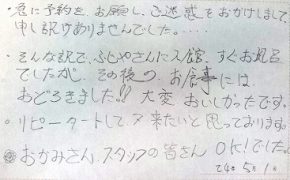 ・急に予約をお願いし、ご迷惑をおかけしまして、
申し訳ありませんでした。‥‥
・そんな訳で、ふじやさんに入館、すぐお風呂
でしたが、その後の お食事には
おどろきました!! 大変 おいしかったです。
・リピーターとして又来たいと思っております。
◎おかみさん、スタッフの皆さん OK!でした。
24年 5月 1日